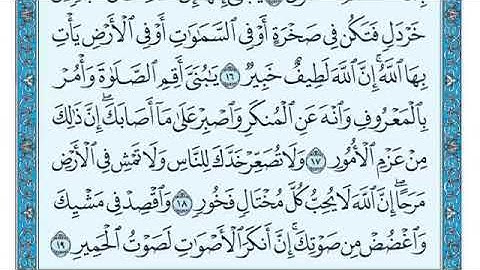 خَرْدَلٍ فَتَكُن فِى صَخْرَةٍ أَوْ فِى ٱلسَّمَٰوَٰتِ أَوْ فِى ٱلْأَرْضِ يَأْتِ
بِهَا ٱللَّهُ ۚ إِنَّ ٱللَّهَ لَطِيفٌ خَبِيرٌ ١٦ يَٰبُنَىَّ أَقِمِ ٱلصَّلَوٰةَ وَأْمُرْ
بِٱلْمَعْرُوفِ وَٱنْهَ عَنِ ٱلْمُنكَرِ وَٱصْبِرْ عَلَىٰ مَآ أَصَابَكَ ۖ إِنَّ ذَٰلِكَ
مِنْ عَزْمِ ٱلْأُمُورِ ١٧ وَلَا تُصَعِّرْ خَدَّكَ لِلنَّاسِ وَلَا تَمْشِ فِى ٱلْأَرْضِ
مَرَحًا ۖ إِنَّ ٱللَّهَ لَا يُحِبُّ كُلَّ مُخْتَالٍ فَخُورٍ ١٨ وَٱقْصِدْ فِى مَشْيِكَ
وَٱغْضُضْ مِن صَوْتِكَ ۚ إِنَّ أَنكَرَ ٱلْأَصْوَٰتِ لَصَوْتُ ٱلْحَمِيرِ ١٩